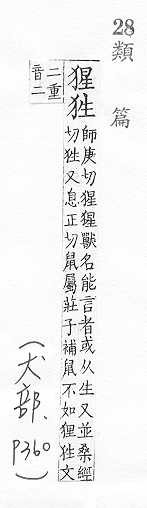 28類篇
猩狌
師庚切猩猩獸名能言者或从生又並桑經
切狌又息正切鼠屬莊子補鼠不如狸狌文
二重
音二
(犬部、P360)